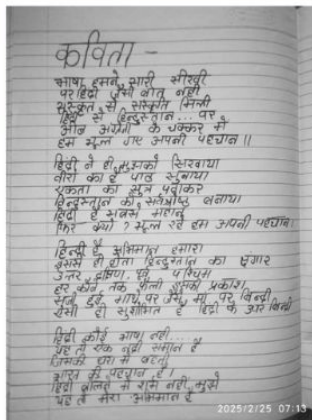 कविता -
भाषा हमने सारी सीखी
पर हिंदी जैसी बात नहीं
संस्कृत से संस्कृति मिली
हिंदी से हिन्दुस्तान... पर
के चक्कर में
हम भूल गए अपनी पहचान ॥
हिंदी ने ही हमको सिखाया
वीरों का है पाठ सुनाया
एकता का सूत्र
हिन्दुस्तान को सर्वश्रेष्ठ बनाया
हिंदी है सबसे महान
फिर क्यों ? भूल रहे हम अपनी पहचान।
हिन्दी है अभिमान हमारा
इससे ही होता हिन्दुस्तान का
उत्तर दक्षिण, पूर्व, पश्चिम
हर कोने तक फैला इसका प्रकाश
माथे पर जैसे माँ पर बिन्दी
ऐसी ही सुशोभित है हिंदी के
हिंदी कोई भाषा नहीं...
यह तो एक नदी समान है
जिसकी धारा में बहता
भारत की पहचान है।
हिंदी बोलने में शर्म नहीं मुझे
यह तो मेरा अभिमान है
2025/2/25 07:13